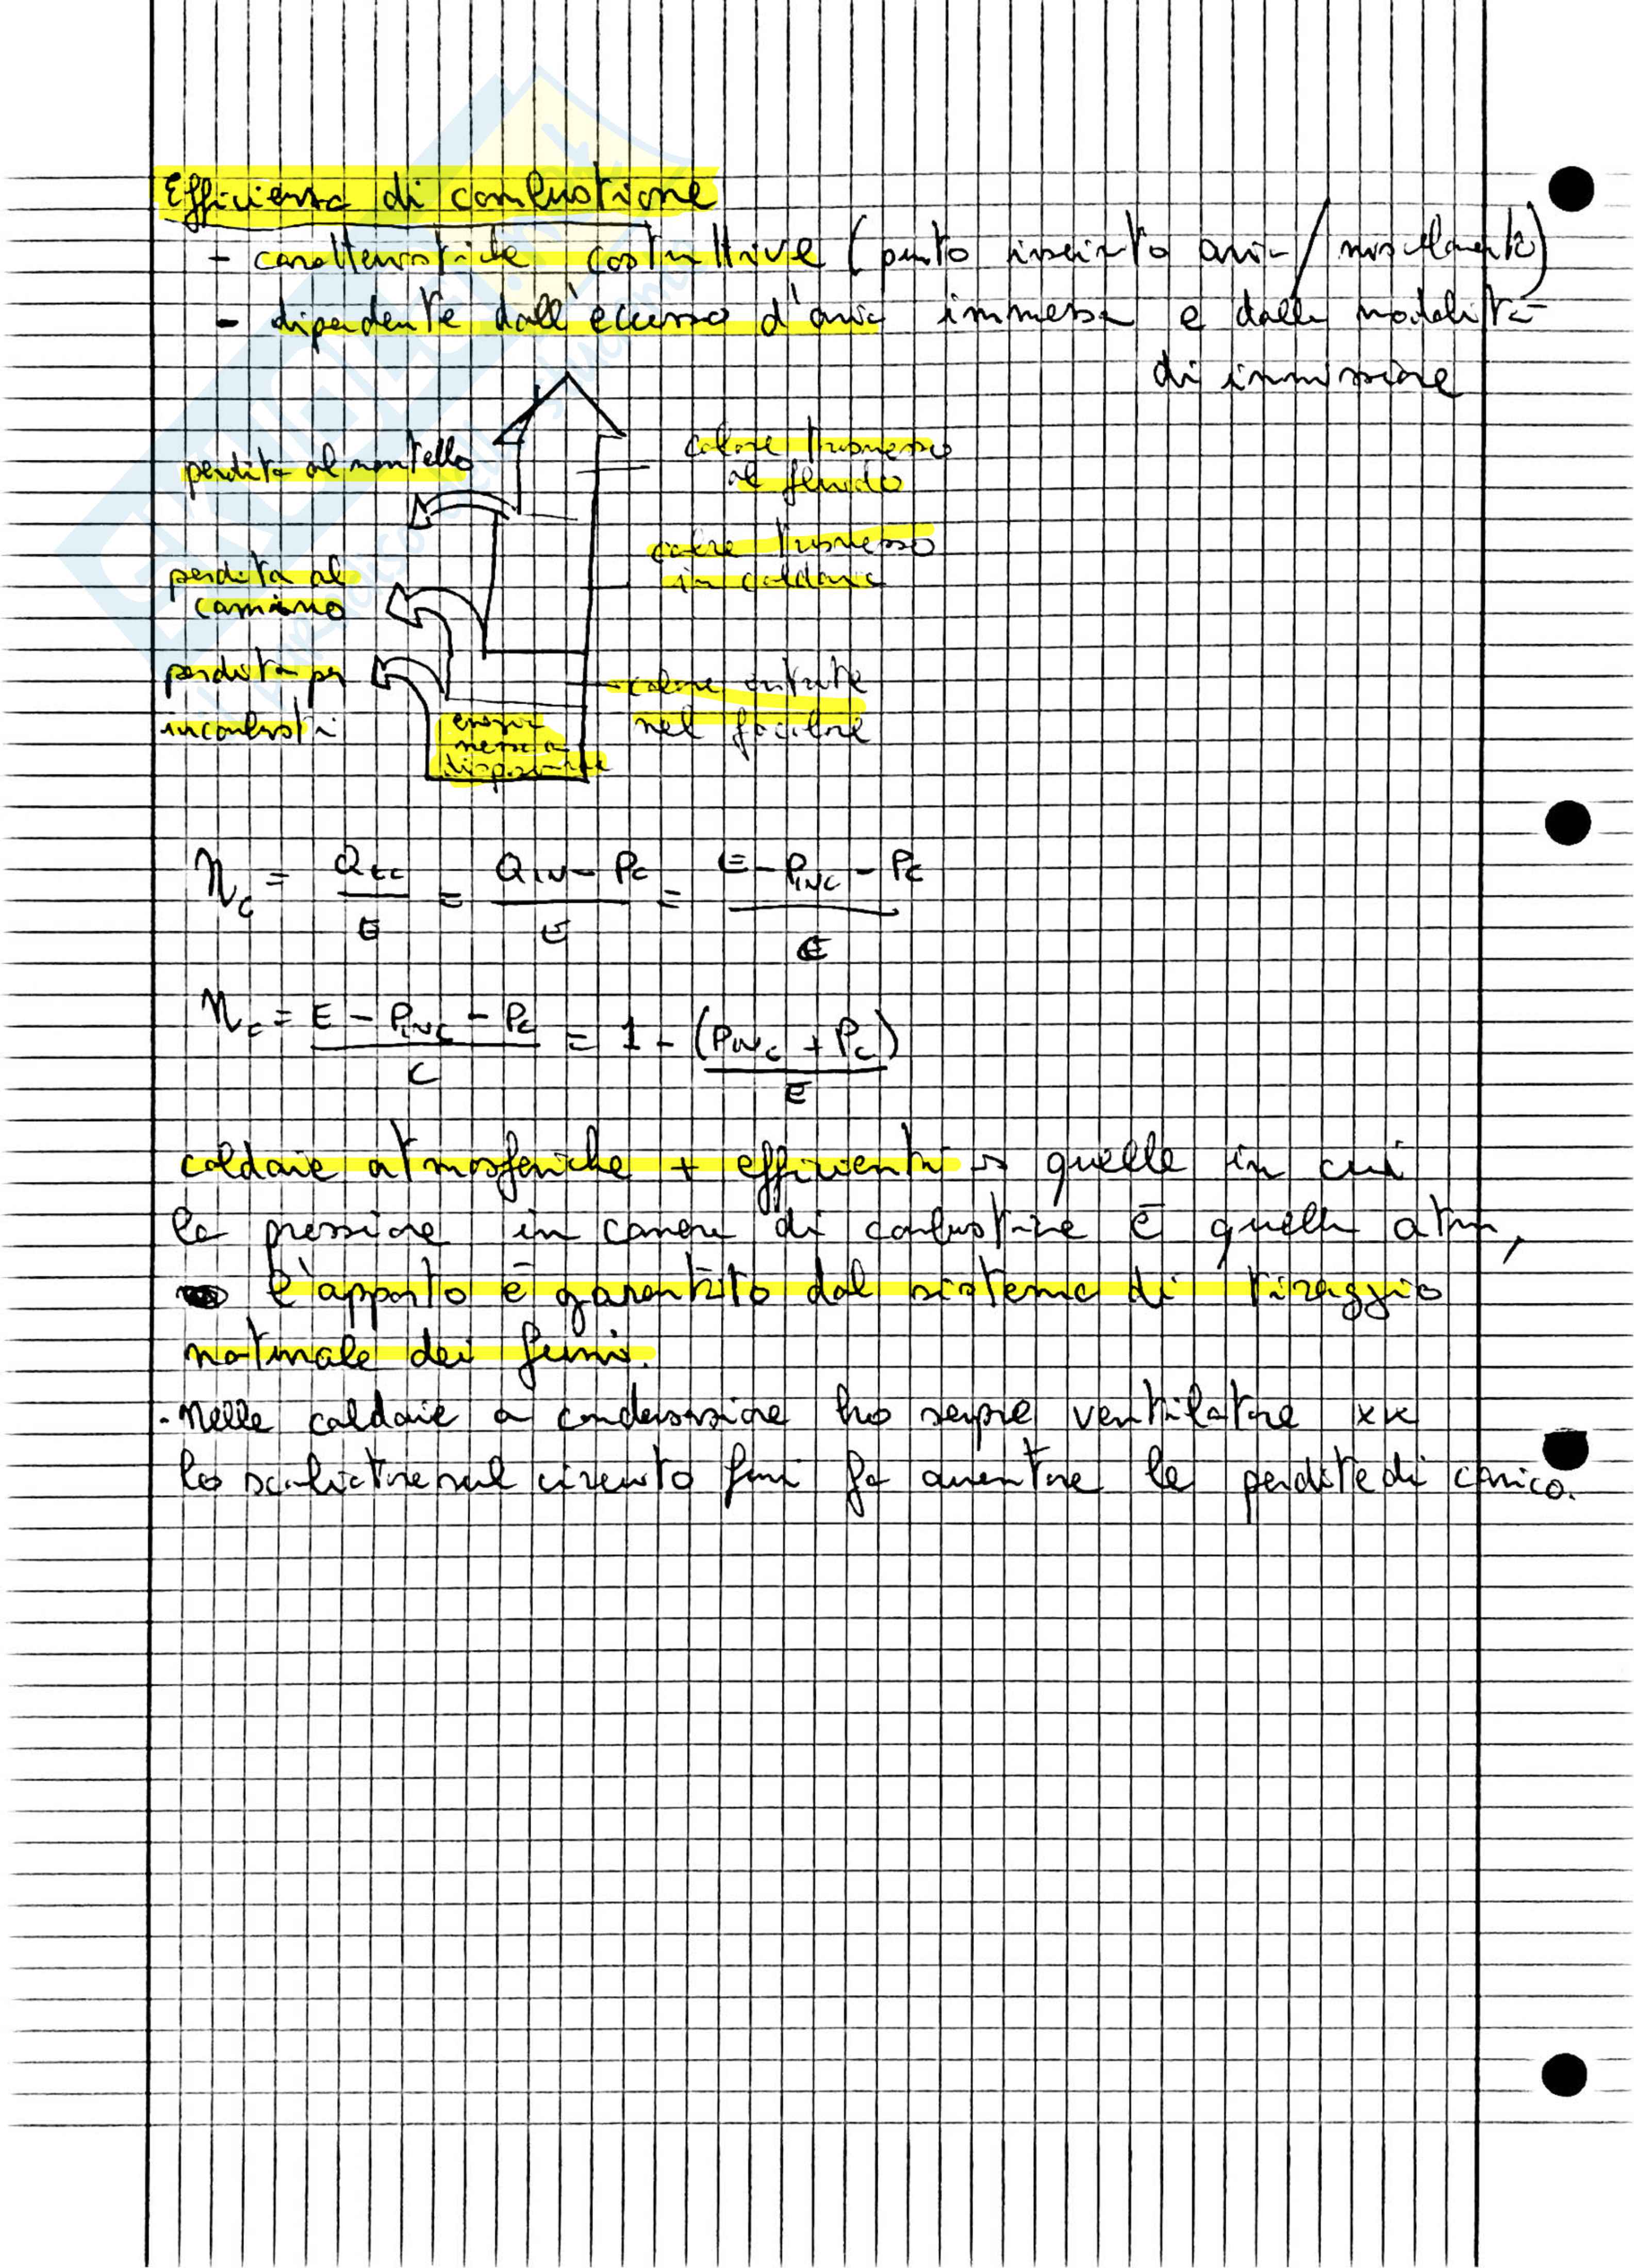 Efficienza di combustione
- caratteristiche costruttive (punto inserimento aria / miscelamento)
- dipendente dall'eccesso d'aria immessa e dalla modalità
di immissione
perdita al mantello
calore trasmesso
al fluido
calore trasmesso
in caldaia
perdita al
camino
perdita per
incombusti
calore entrante
nel focolare
energia
messa a
disposizione
η_c = Q_tc / E = (Q_IN - P_c) / E = (E - P_INC - P_c) / E
η_c = (E - P_INC - P_c) / C = 1 - (P_INC + P_c) / E
caldaie atmosferiche + efficienti → quelle in cui
la pressione in camera di combustione è quella atm,
l'apporto è garantito dal sistema di tiraggio
naturale dei fumi.
- Nelle caldaie a condensazione ho sempre ventilatore xk
lo scambiatore sul circuito fumi fa aumentare le perdite di carico.